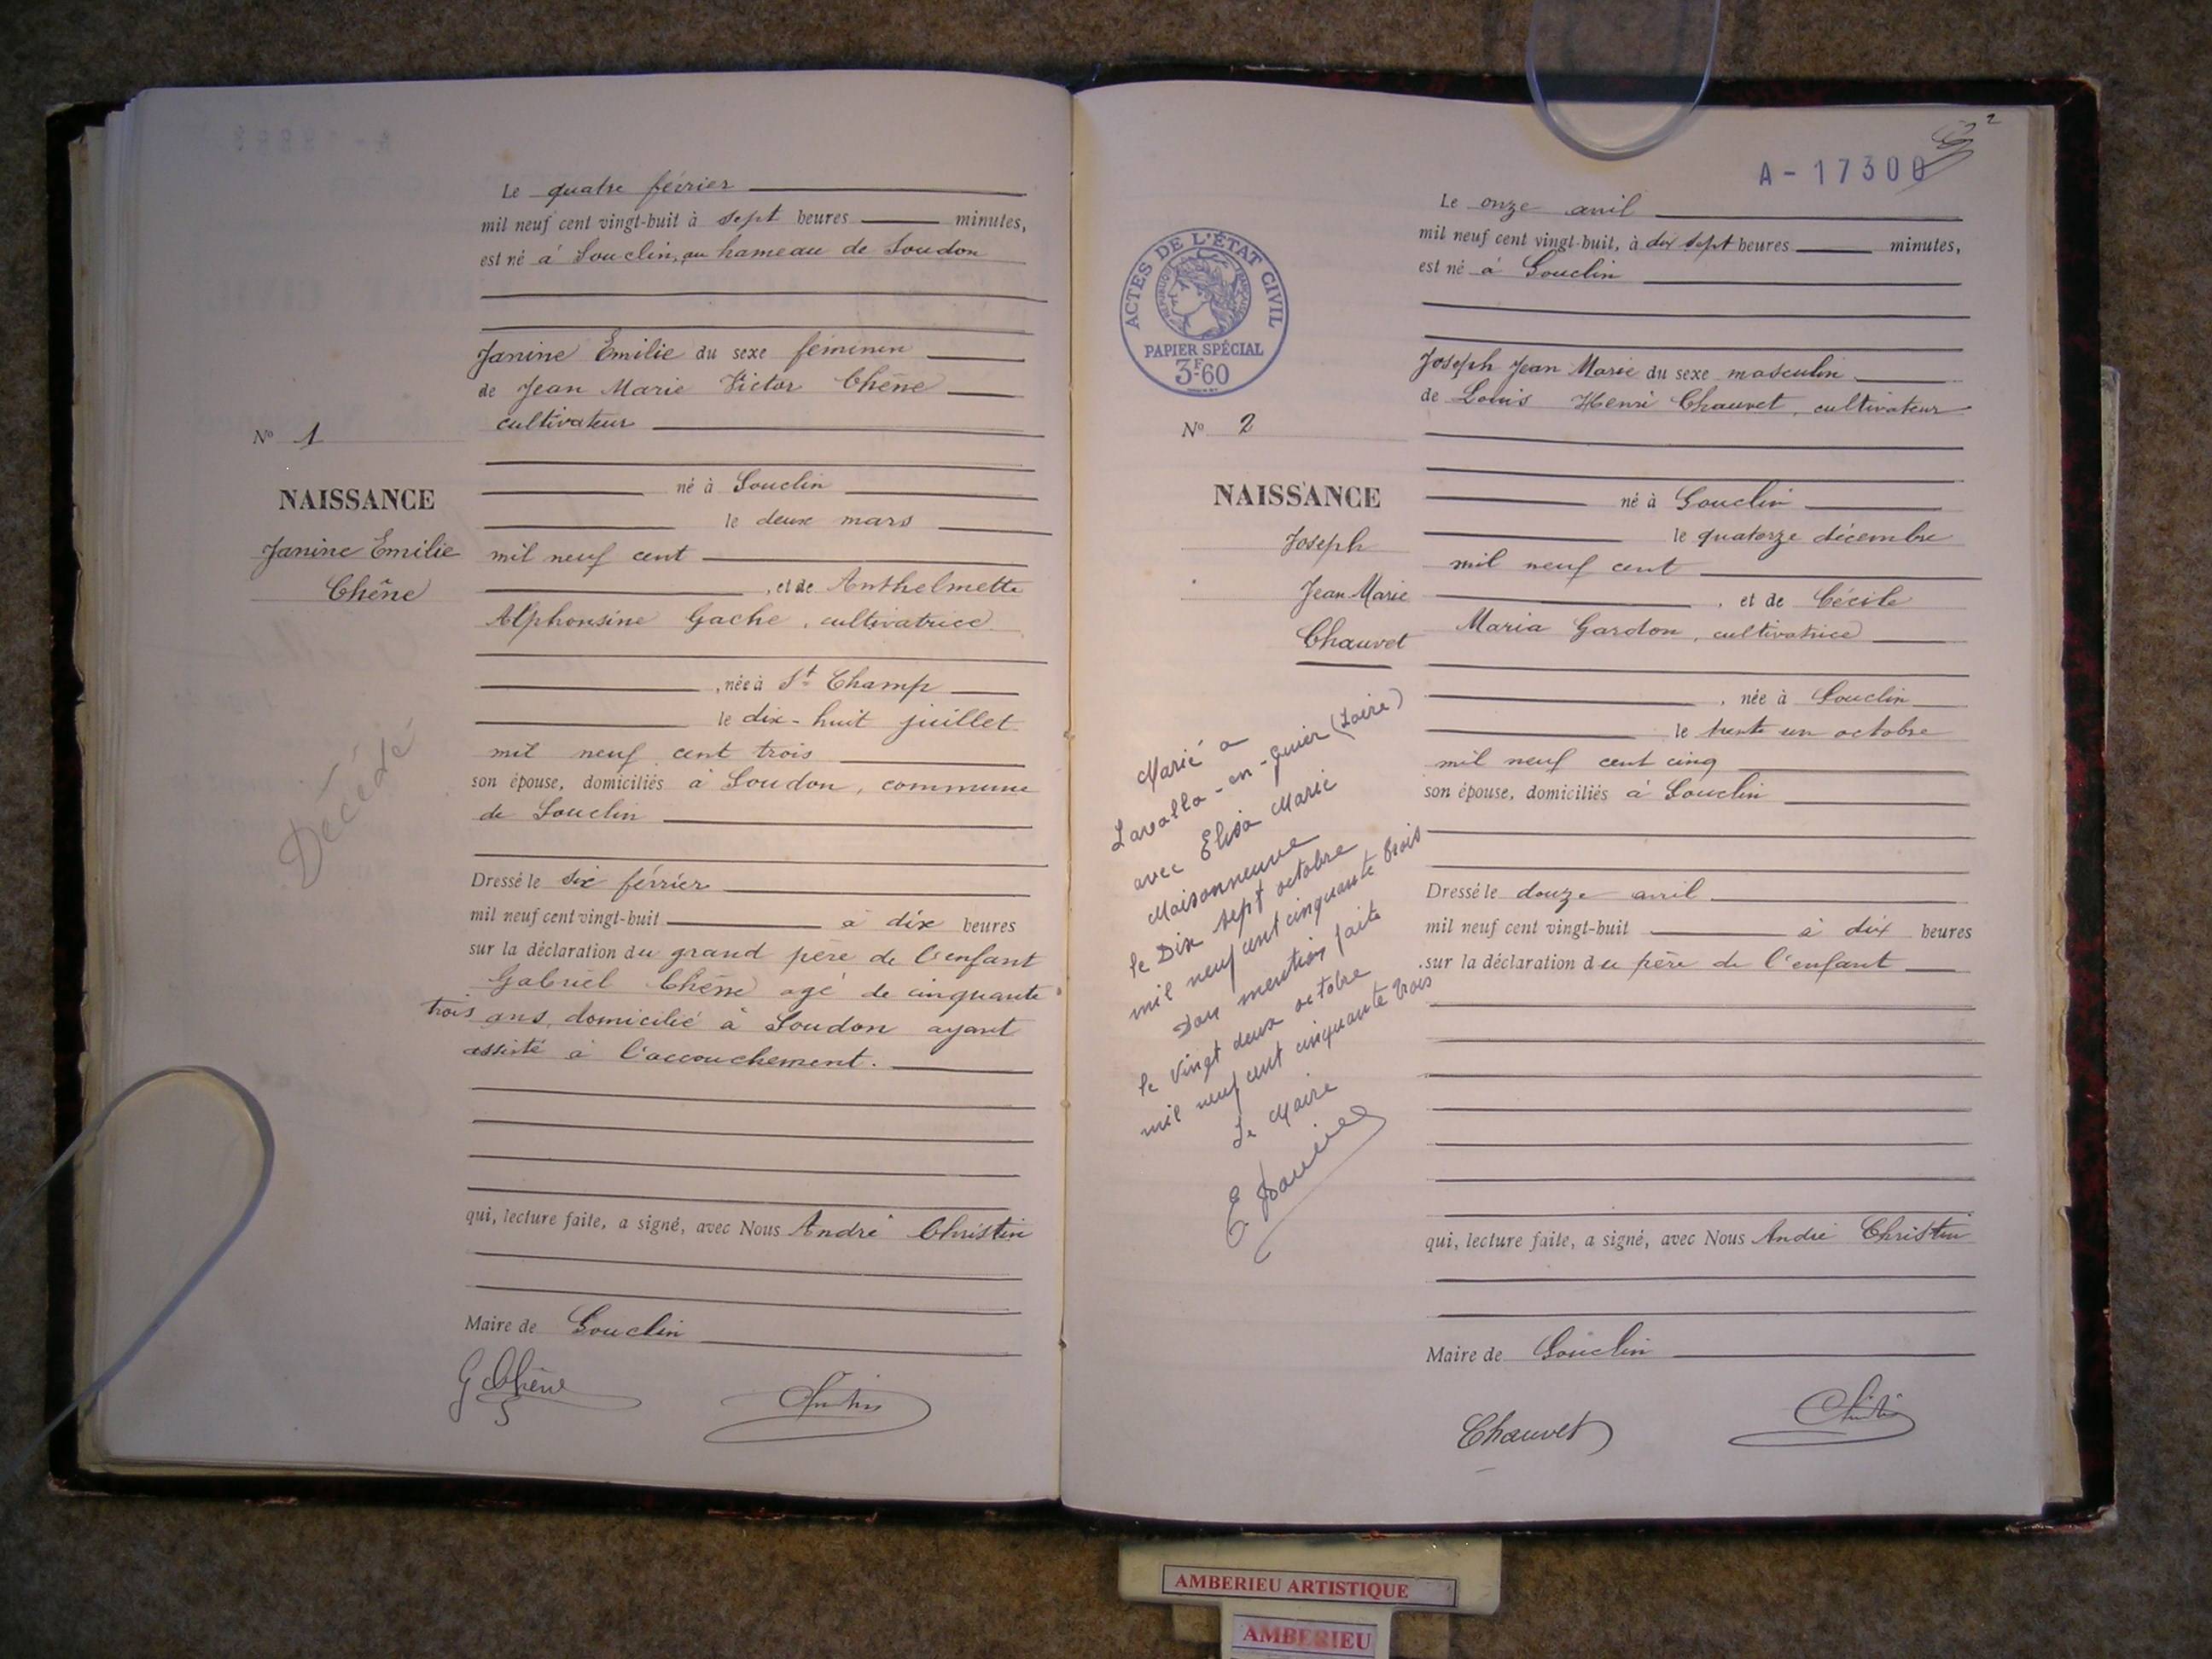 Le quatre février
mil neuf cent vingt-huit à sept heures minutes,
est né à Souclin, au hameau de Soudon
Janine Emilie du sexe féminin
de Jean Marie Victor Chêne
cultivateur
Nº 1
né à Souclin
NAISSANCE
le deux mars
Janine Emilie
Chêne
mil neuf cent
, et de Anthelmette
Alphonsine Gache, cultivatrice
, née à St Champ
le dix-huit juillet
mil neuf cent trois
son épouse, domiciliés à Soudon, commune
de Souclin
Décédé
Dressé le six février
mil neuf cent vingt-huit à dix heures
sur la déclaration du grand père de l'enfant
Gabriel Chêne agé de cinquante
trois ans, domicilié à Soudon ayant
assisté à l'accouchement.
qui, lecture faite, a signé, avec Nous André Christin
Maire de Souclin
G Chêne
2
A-17300
Le onze avril
mil neuf cent vingt-huit, à dix sept heures minutes,
est né à Souclin
ACTES DE L'ÉTAT CIVIL
RÉPUBLIQUE FRANÇAISE
PAPIER SPÉCIAL
3F.60
Joseph Jean Marie du sexe masculin
de Louis Henri Chauvet, cultivateur
Nº 2
NAISSANCE
né à Souclin
Joseph
Jean Marie
Chauvet
le quatorze décembre
mil neuf cent
, et de Cécile
Maria Gardon, cultivatrice
, née à Souclin
le trente un octobre
mil neuf cent cinq
son épouse, domiciliés à Souclin
Marié à
Lavalla-en-Guier (Loire)
avec Elisa Marie
Maisonneuve
le Dix sept octobre
mil neuf cent cinquante trois
Dont mention faite
le vingt deux octobre
mil neuf cent cinquante trois
Le Maire
Dressé le douze avril
mil neuf cent vingt-huit à dix heures
sur la déclaration du père de l'enfant
qui, lecture faite, a signé, avec Nous André Christin
Maire de Souclin
Chauvet
AMBERIEU ARTISTIQUE
AMBERIEU